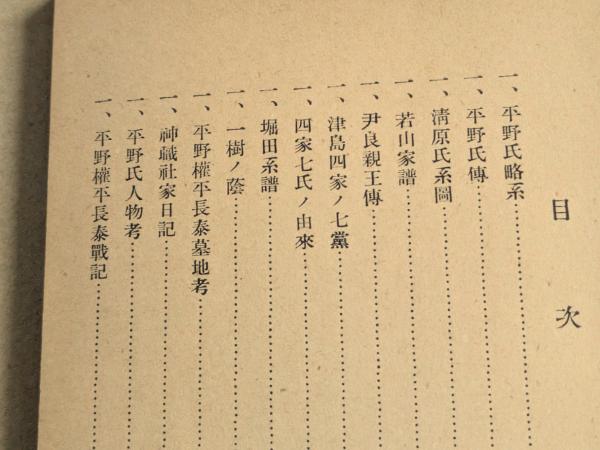 目次
一、平野氏略系
一、平野氏傳
一、淸原氏系圖
一、若山家譜
一、尹良親王傳
一、津島四家ノ七黨
一、四家七氏ノ由來
一、堀田系譜
一、一樹ノ蔭
一、平野權平長泰墓地考
一、神職社家日記
一、平野氏人物考
一、平野權平長泰戰記